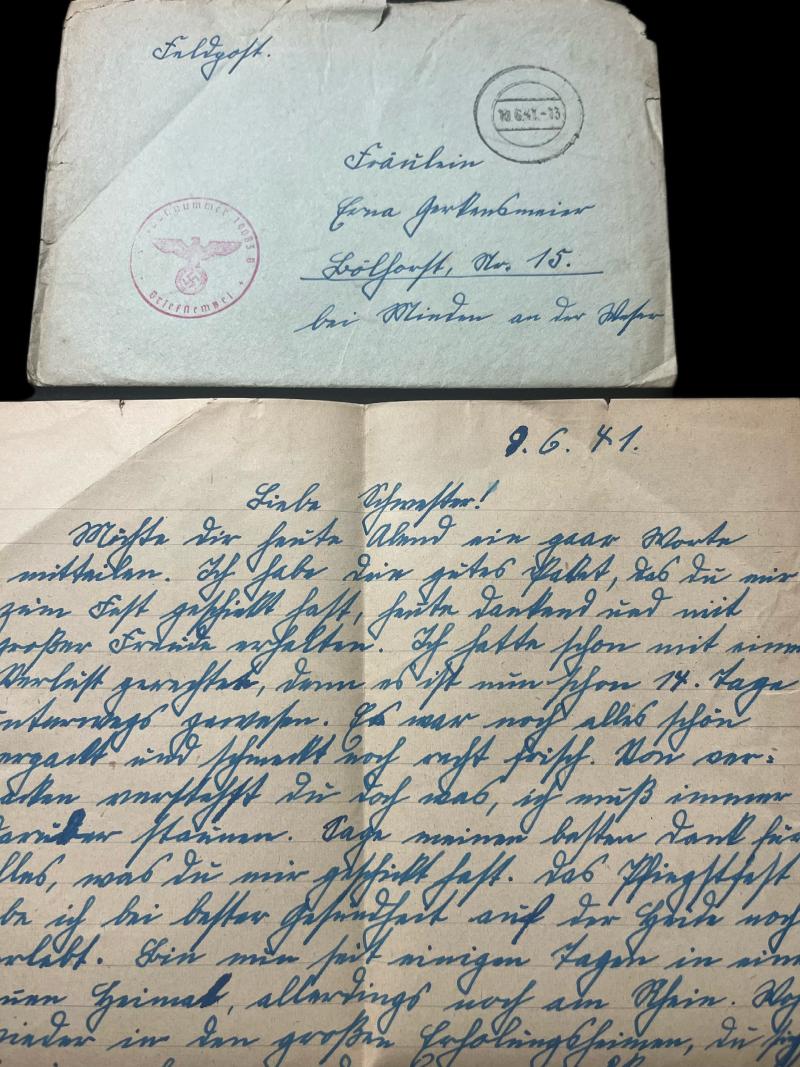 Feldpost.
10.6.41.-13
Fräulein
Erna Gerkensmeier
Bölhorst, Nr. 15.
bei Minden an der Weser
nummer 10083 B
Briefstempel
9. 6. 41.
Liebe Schwester!
Möchte dir heute Abend ein paar Worte
mitteilen. Ich habe dein gutes Paket, das du mir
zum Fest geschickt hast, heute dankend und mit
großer Freude erhalten. Ich hatte schon mit einem
Verlust gerechtet, denn es ist nun schon 14. Tage
unterwegs gewesen. Es war noch alles schön
verpackt und schmeckt noch recht frisch. Von ver-
packen verstehst du doch was, ich muß immer
darüber staunen. Sage meinen besten Dank für
alles, was du mir geschickt hast. Das Pfingstfest
habe ich bei bester Gesundheit auf der Heide noch
erlebt. Bin nun seit einigen Tagen in eine
neuen Heimat, allerdings noch am Rhein.
wieder in den großen Erholungsheimen, du